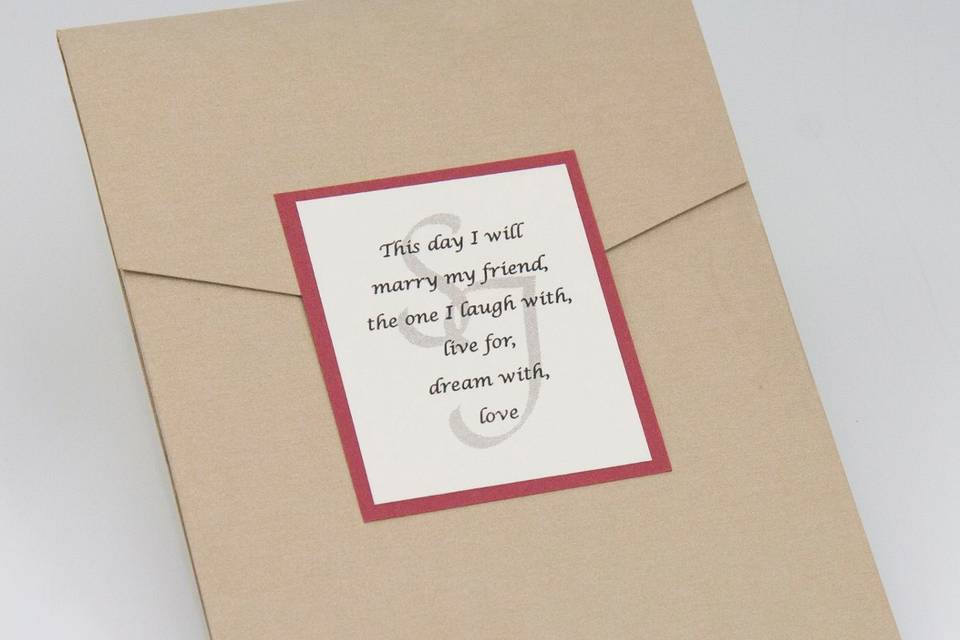 SJ
This day I will
marry my friend,
the one I laugh with,
live for,
dream with,
love